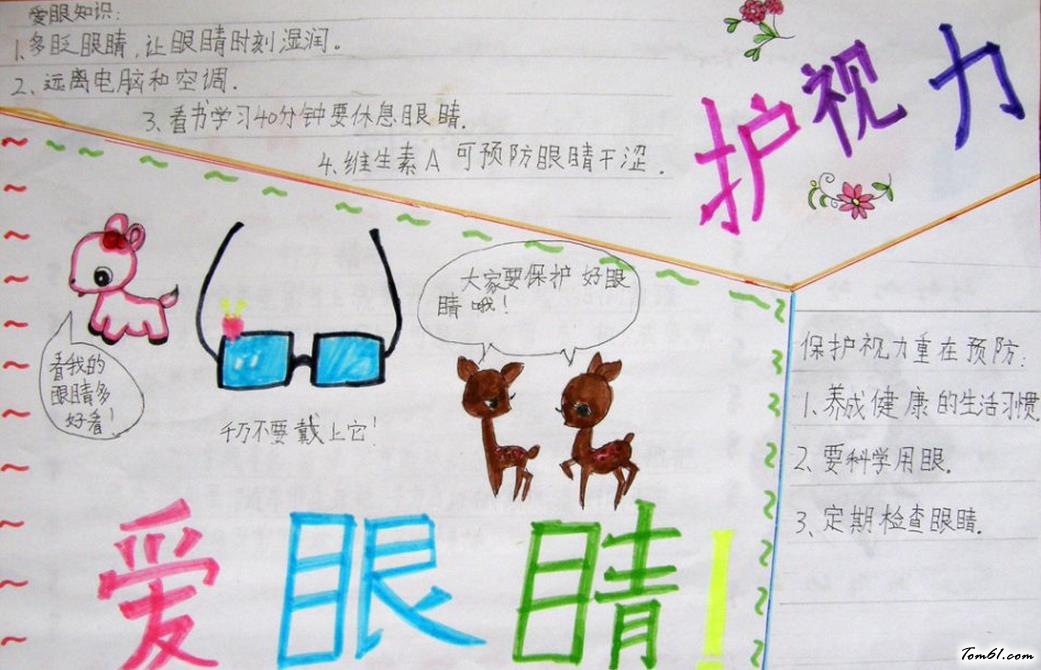 爱眼知识:
1.多眨眼睛,让眼睛时刻湿润。
2、远离电脑和空调.
3、看书学习40分钟要休息眼睛.
4.维生素A可预防眼睛干涩.
护视力
看我的
眼睛多
好看!
千万不要戴上它!
大家要保护好眼
睛哦!
保护视力重在预防:
1.养成健康的生活习惯
2、要科学用眼.
3、定期检查眼睛.
爱眼睛!
Tom61.com